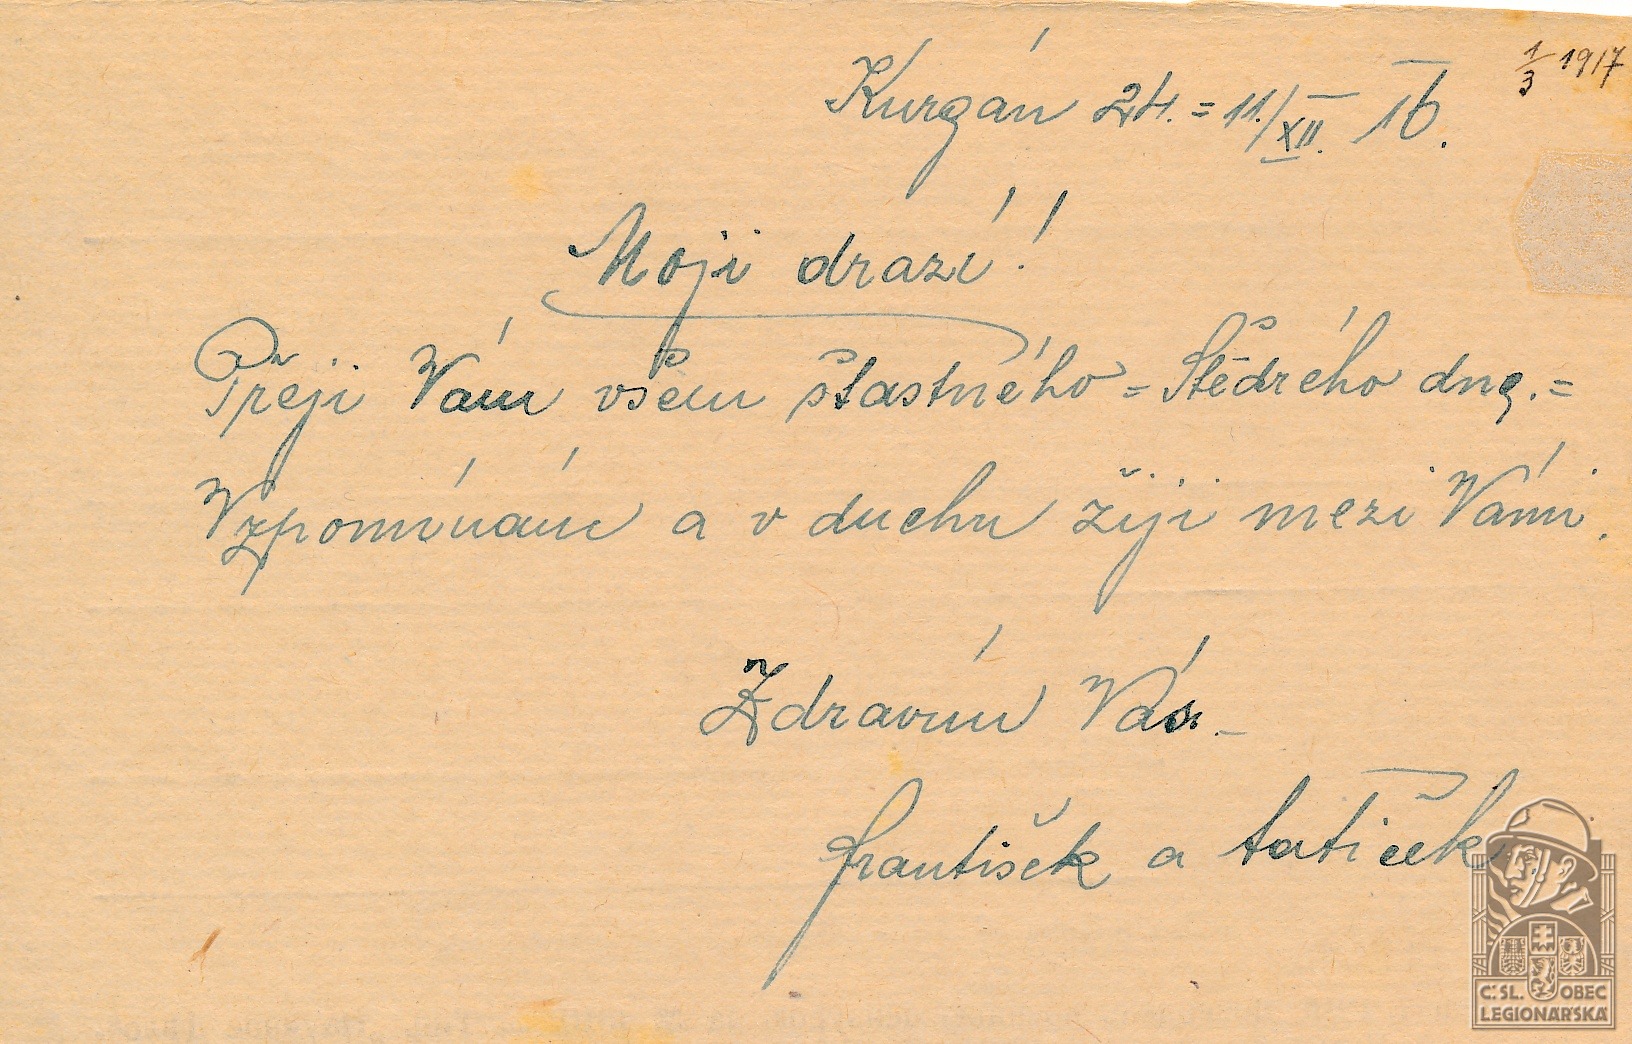 1/3 1917
Kurgán 24. = 11./XII. 16.
Moji drazí!
Přeji Vám všem šťastného = Štědrého dne. =
Vzpomínám a v duchu žiji mezi Vámi.
Zdravím Vás. –
František a tatíček
Č:SL. OBEC
LEGIONÁŘSKÁ